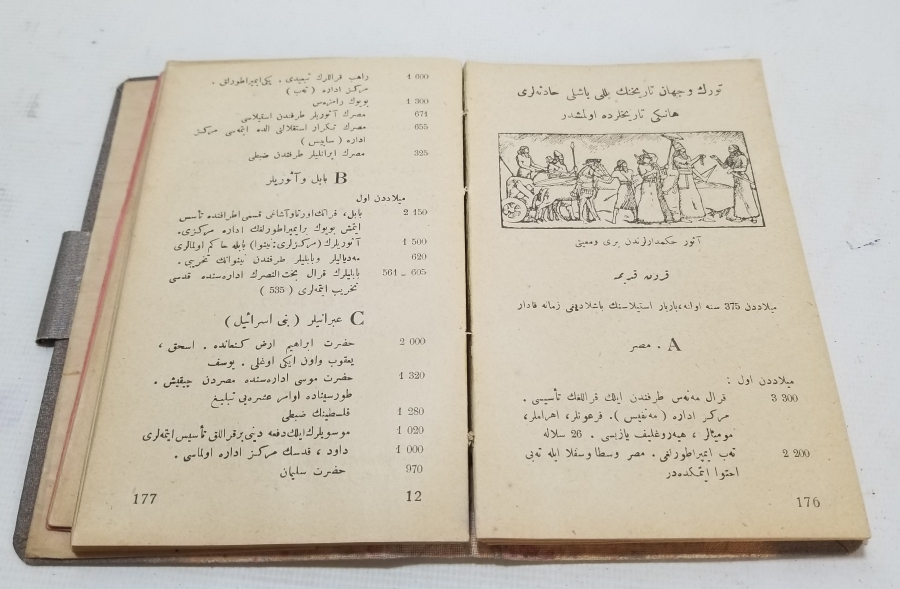 تورك و جهان تاريخنك بللی باشلی حادثه‌لری
هانكی تاريخلرده اولمشدر
آثور حكمدارلرندن بری و معیتی
قرون قدیمه
میلاددن 375 سنه اولنه، باربار استیلاسنك باشلادیغی زمانه قادار
A . مصر
میلاددن اول :
3 300 قرال مه‌نه‌س طرفندن ایلك قراللغك تأسیسی .
مركز اداره ( مه‌نفیس ). فرعونلر، اهراملر،
مومیالر ، هیه‌روغلیف یازیسی . 26 سلاله
2 200 ته‌ب ایمپراطورلغی . مصر وسطا و سفلا ایله ته‌بی
احتوا ایتمكده‌در
176
1 600 راهب قراللرك تبعیدی . یكی ایمپراطورلق .
مركز اداره ( ته‌ب )
1 300 بویوك رامزه‌س
671 مصرك آثوریلر طرفندن استیلاسی
655 مصرك تكرار استقلالنی الده ایتمه‌سی مركز
اداره ( ساییس )
325 مصرك ایرانلیلر طرفندن ضبطی
B بابل و آثوریلر
میلاددن اول
2 450 بابل، فراتك اورتا و آشاغی قسمی اطرافنده تأسس
ایتمش بویوك بر ایمپراطورلغك اداره مركزی.
1 500 آثوریلرك (مركزلری: نینوا) بابله حاكم اولمالری
620 مه‌دیالیلر و بابلیلر طرفندن نینوانك تخریبی .
605 – 561 بابلیلرك قرال بخت‌النصرك اداره‌سنده قدسی
تخریب ایتمه‌لری ( 535 )
C عبرانیلر ( بنی اسرائیل )
2 000 حضرت ابراهیم ارض كنعانده . اسحق ،
یعقوب و اون ایكی اوغلی . یوسف
1 320 حضرت موسی اداره‌سنده مصردن چیقیش .
طورسیناده اوامر عشره‌یی تبلیغ
1 280 فلسطینك ضبطی
1 020 موسویلرك ایلك دفعه دینی بر قراللق تأسیس ایتمه‌لری
1 000 داود ، قدسك مركز اداره اولماسی .
970 حضرت سلیمان
12
177